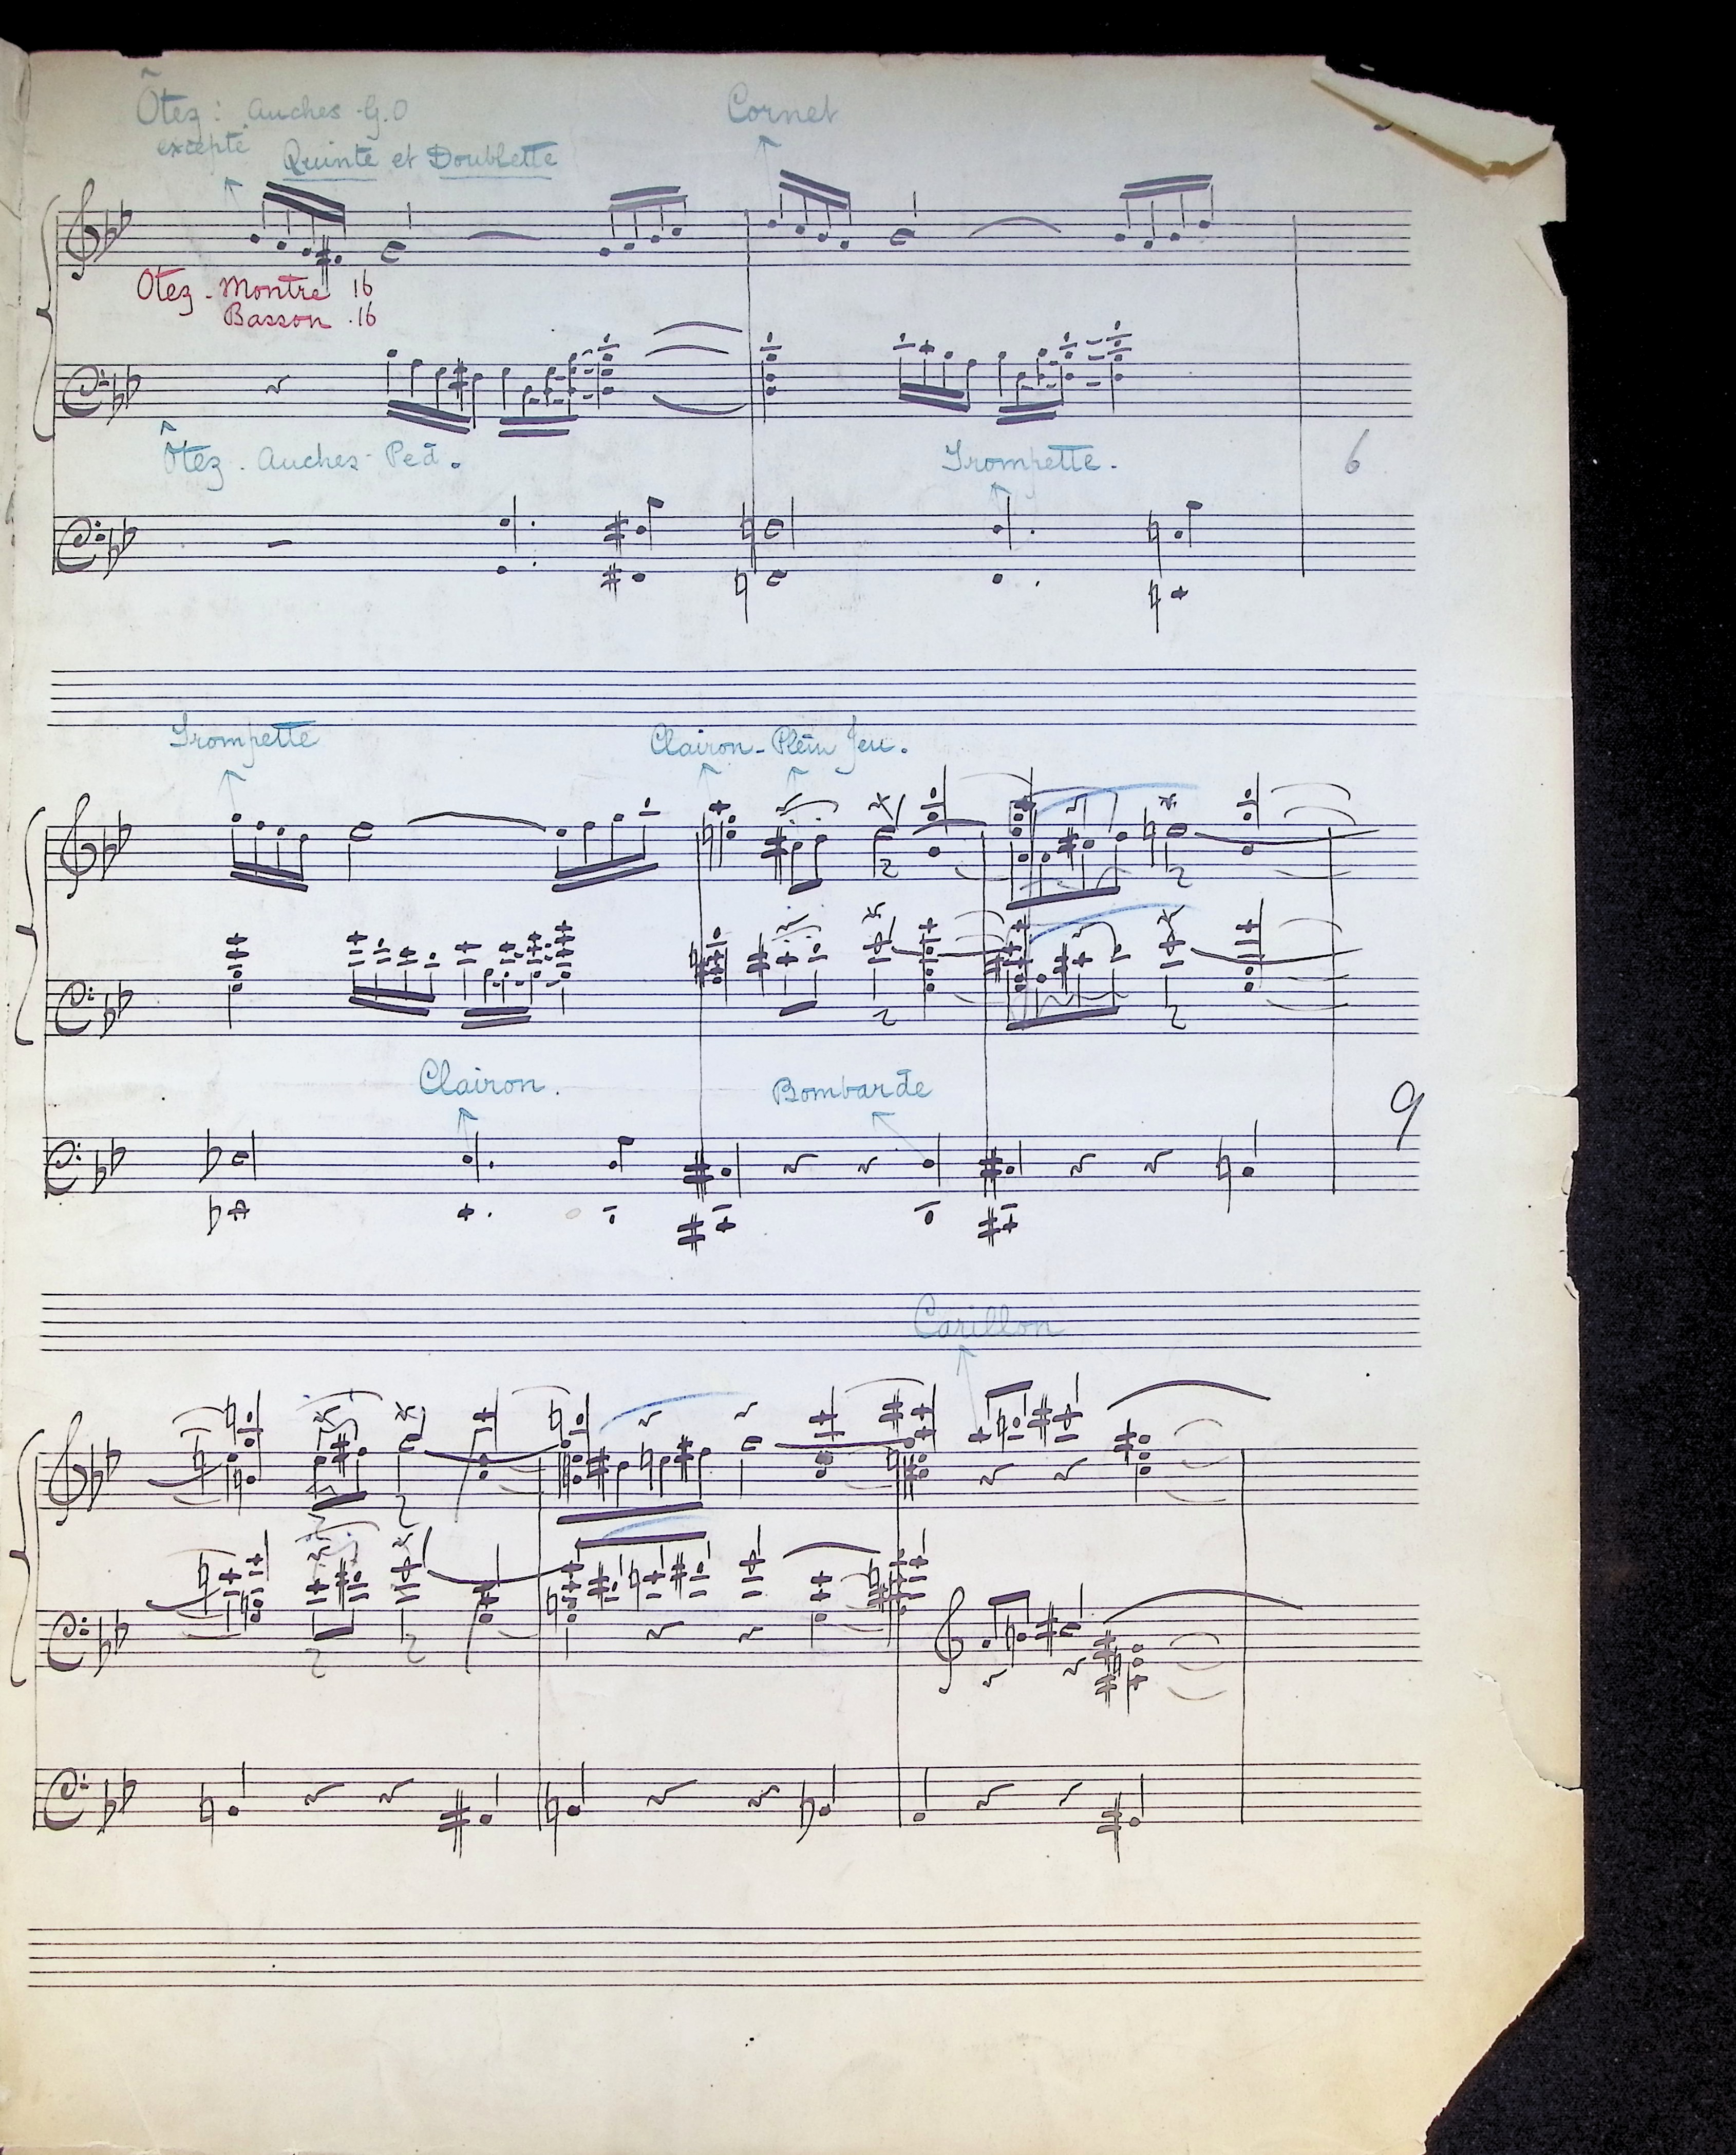 Ôtez : Anches - G.O
excepté
Quinte et Doublette
Cornet
Otez - Montre 16
Basson . 16
Ôtez . Anches - Péd.
Trompette .
6
Trompette
Clairon - Plein Jeu .
Clairon .
Bombarde
9
Carillon